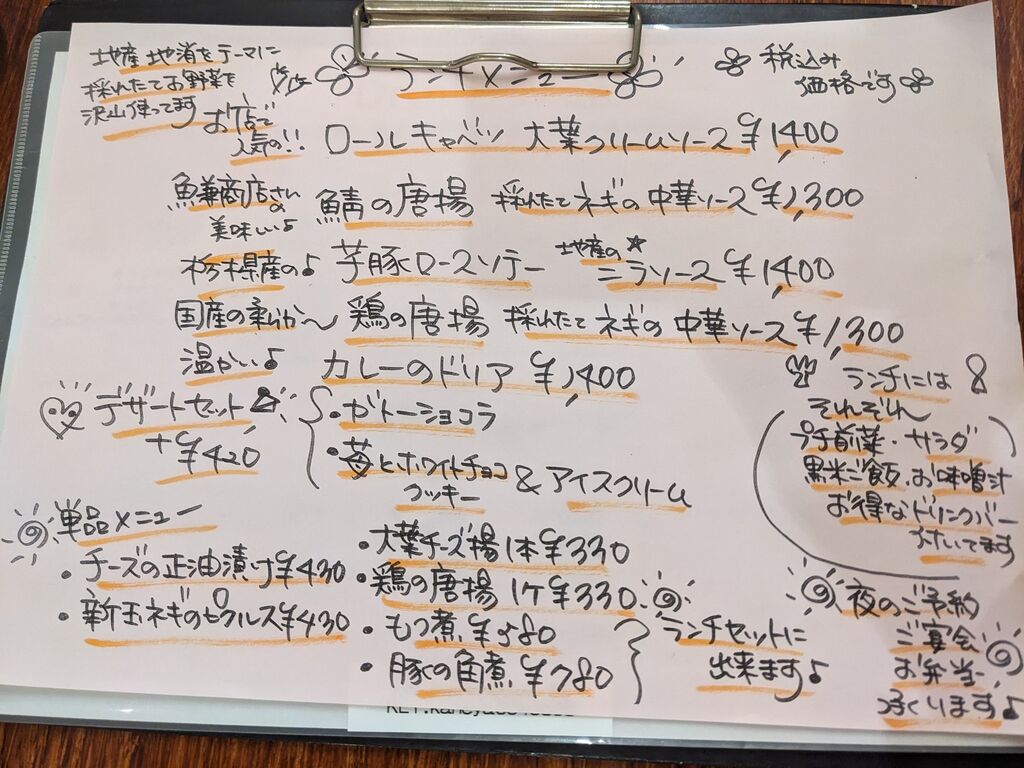 地産地消をテーマに
採れたてお野菜を
沢山使ってます
ランチメニュー
税込み
価格です
お店で
人気の!!
ロールキャベツ 大葉クリームソース ¥1,400
魚兼商店さんの
美味しい♪
鯖の唐揚 採れたてネギの中華ソース ¥1,300
栃木県産の♪ 芋豚ロースソテー 地産の☆ ニラソース ¥1,400
国産の柔らか〜 鶏の唐揚 採れたてネギの中華ソース ¥1,300
温かい♪ カレーのドリア ¥1,400
デザートセット
+¥420
・ガトーショコラ
・苺とホワイトチョコ
クッキー
&アイスクリーム
ランチには
それぞれ
プチ前菜・サラダ
黒米ご飯、お味噌汁
お得なドリンクバー
付いてます
単品メニュー
・チーズの正油漬け ¥430
・新玉ネギのピクルス ¥430
・大葉チーズ揚1本 ¥330
・鶏の唐揚 1ケ ¥330
・もつ煮 ¥580
・豚の角煮 ¥780
ランチセットに
出来ます♪
夜のご予約
ご宴会
お弁当
承くります♪